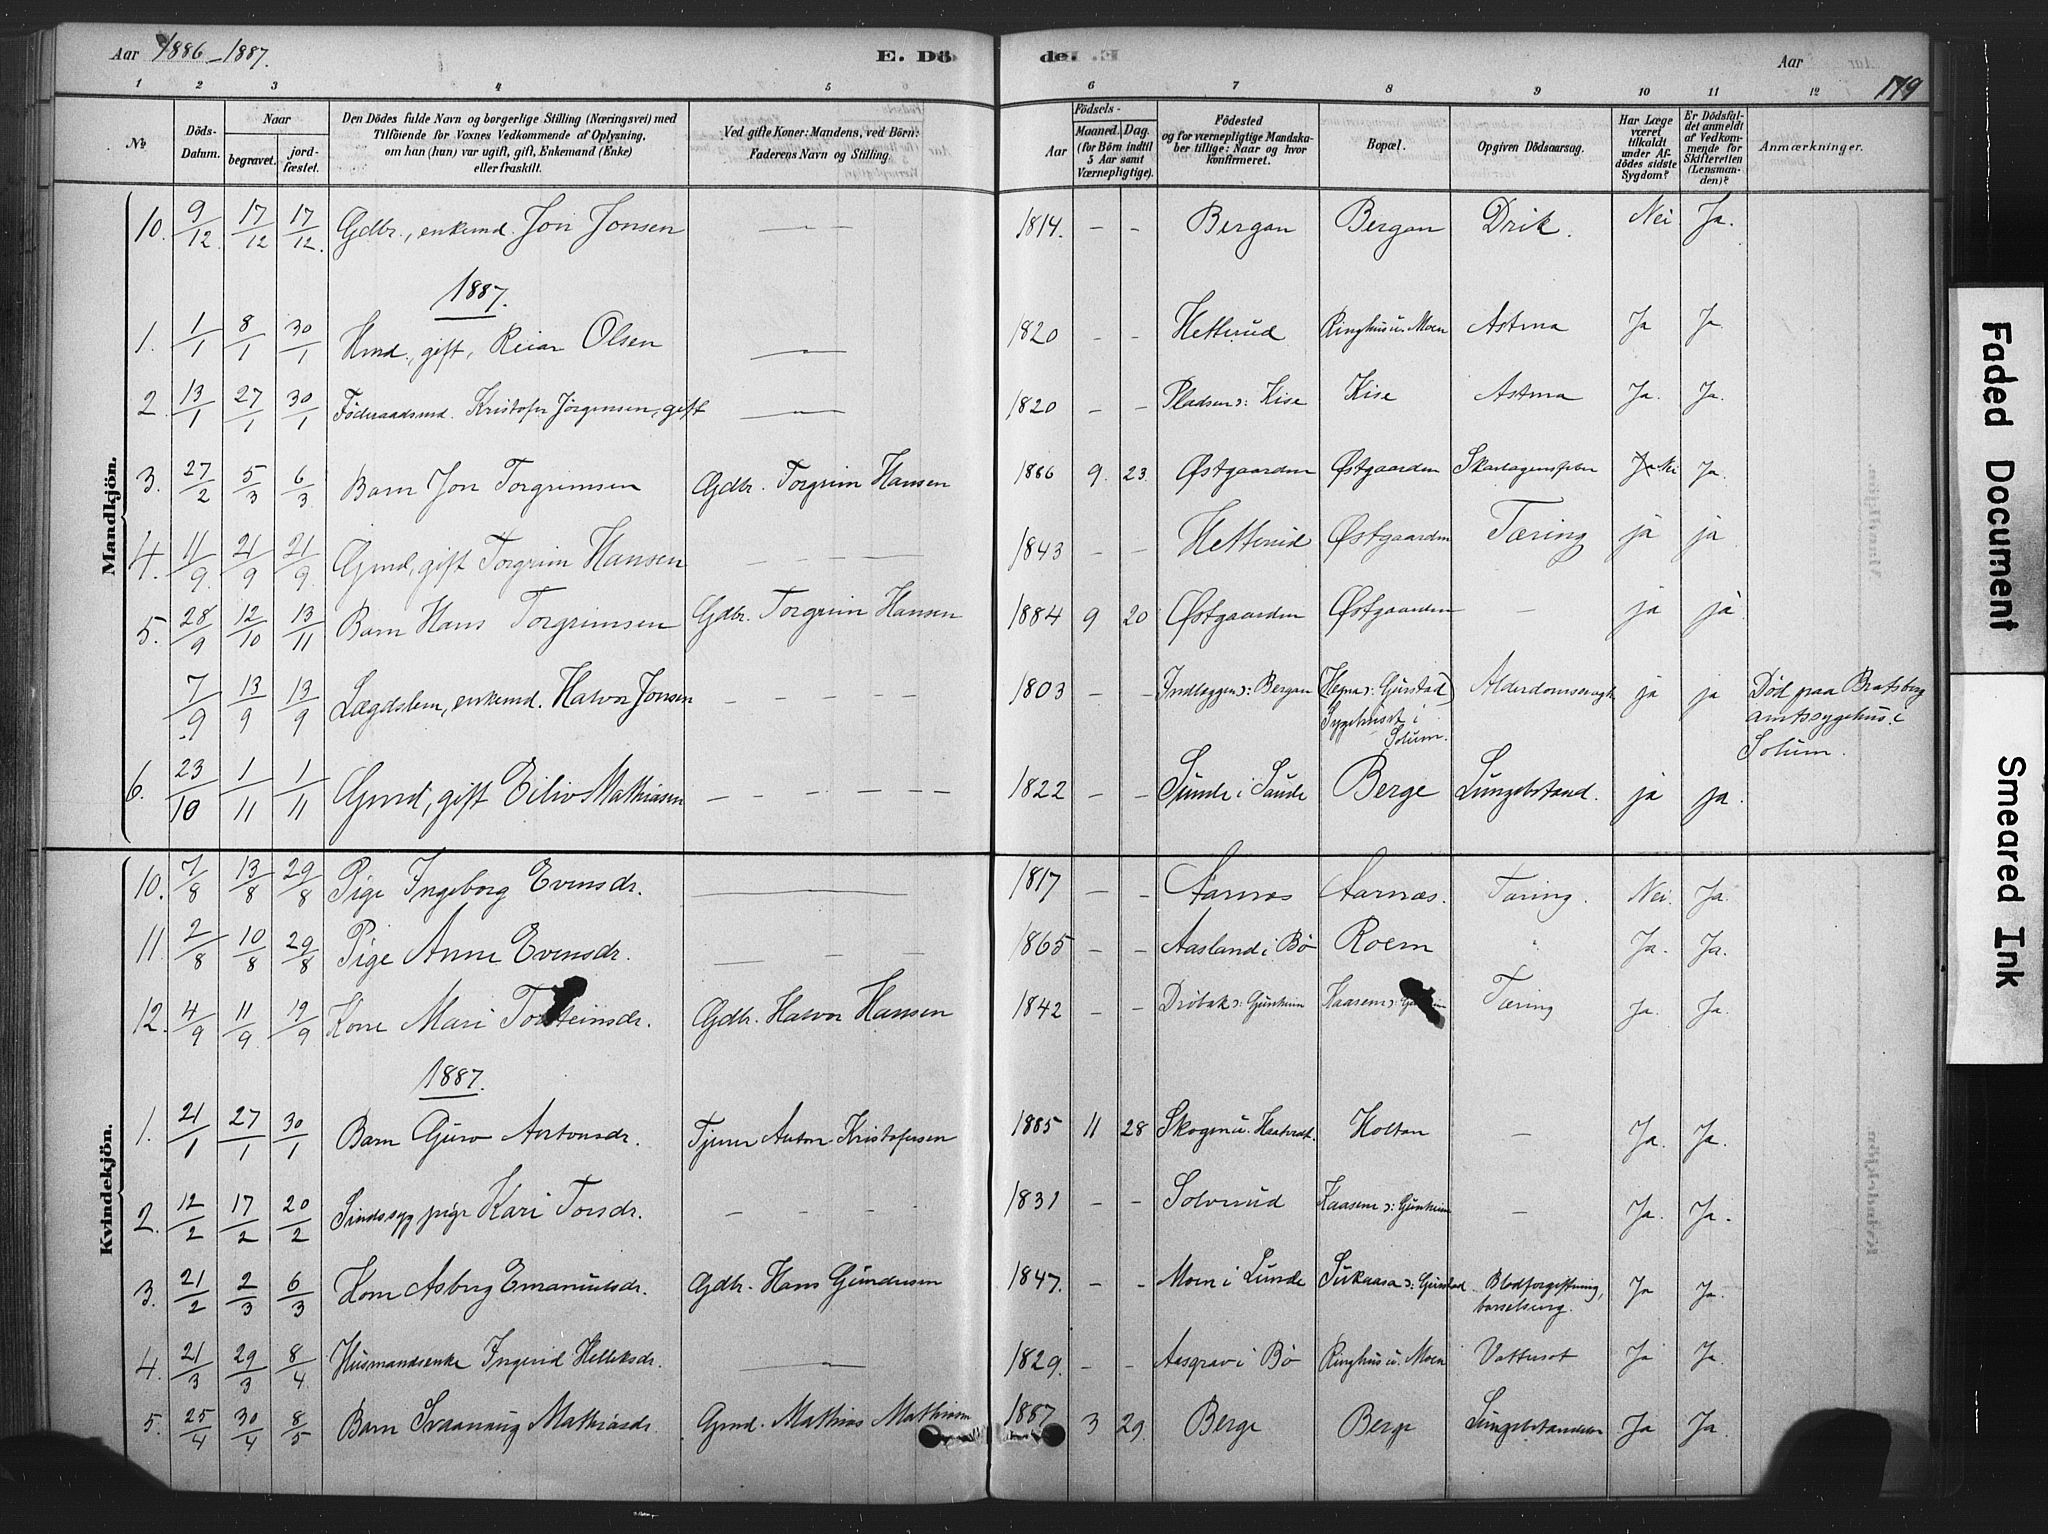 Aar 1886-1887.
E. Dö
de.
Aar
179
1 2 3 4 5 6 7 8 9 10 11 12
№
Döds-Datum.
Naar
begravet.
jord-fæstet.
Den Dödes fulde Navn og borgerlige Stilling (Næringsvei) med
Tilföiende for Voxnes Vedkommende af Oplysning,
om han (hun) var ugift, gift, Enkemand (Enke)
eller fraskilt.
Ved gifte Koner: Mandens, ved Börn:
Faderens Navn og Stilling.
Födsels-
Aar
Maaned. Dag.
(for Börn indtil
5 Aar samt
Værnepligtige).
Födested
og for værnepligtige Mandska-
ber tillige: Naar og hvor
konfirmeret.
Bopæl.
Opgiven Dödsaarsag.
Har Læge
været
tilkaldt
under Af-
dödes sidste
Sygdom?
Er Dödsfal-
det anmeldt
af Vedkom-
mende for
Skifteretten
(Lensman-
den)?
Anmærkninger.
Mandkjön.
10. 9/12 17/12 17/12 Gdbr., enkemd. Jon Jonsen — — 1814. - - Bergan Bergan Drik. Nei Ja.
1887.
1. 1/1 8/1 30/1 Hmd., gift, Reiar Olsen — 1820 - - Hetterud Ringhus u. Moen Astma Ja Ja
2. 13/1 27/1 30/1 Föderaadsmd. Kristofer Jörgensen, gift — 1820 - - Pladsen ɔ: Kise Kise Astma Ja. Ja.
3. 27/2 5/3 6/3 Barn Jon Torgrimsen Gdbr. Torgrim Hansen 1886 9. 23. Østgaarden Østgaarden Skarlagensfeber Nei Ja.
4. 11/9 21/9 21/9 Gmd, gift Torgrim Hansen - — 1843 - - Hetterud Østgaarden Tæring ja ja
5. 28/9 12/10 13/11 Barn Hans Torgrimsen Gdbr. Torgrim Hansen 1884 9 20 Østgaarden Østgaarden — ja ja
7/9 13/9 13/9 Lægdslem, enkemd. Halvor Jonsen - - - - 1803 - - Indlæggen ɔ: Bergan (Hegna ɔ: Gurstad) Sygehuset i Solum. Alderdomssvagh. ja ja Död paa Bratsberg
amtssygehus i
Solum.
6. 23/10 1/11 1/11 Gmd, gift Eiliv Mathiasen - - - - - - 1822 - - Sunde i Saude Berge Lungebetænd. ja ja.
Kvindekjön.
10. 7/8 13/8 29/8 Pige Ingeborg Evensdr. — 1817 - - Aarnæs Aarnæs. Tæring. Nei. Ja.
11. 2/8 10/8 29/8 Pige Anne Evensdr. - - - - 1865 - - Aasland i Bø Roem " Ja. Ja.
12. 4/9 11/9 19/9 Kone Mari Torsteinsdr. Gdbr. Halvor Hansen 1842 - - Dröbak ɔ: Gunheim Kaasene ɔ: Tæring Ja. Ja.
1887.
1. 21/1 27/1 30/1 Barn Guro Antonsdr. Tjener Anton Kristofersen 1885 11 28 Skogen u. Haatvedt. Holtan — Ja. Ja.
2. 12/2 17/2 20/2 Sindssyg pige Kari Torsdr. - - - - 1831 - - Solverud Kaasene ɔ: Gunheim — Ja. Ja.
3. 21/2 2/3 6/3 Kone Asberg Emanuelsdr. Gdbr. Hans Gundersen 1847. - - Moen i Lunde ɔ: Gurstad Blodforgiftning,
barselseng. Ja Ja.
4. 21/3 29/3 8/4 Husmandsenke Ingerid Helleksdr. — 1829. - - Aasgrav i Bø Ringhus u. Moen Vattersot Ja Ja
5. 25/4 30/4 8/5 Barn Svanaug Mathiasdr. Gmd. Mathias Mathiasen 1887 3 29. Berge Berge Lungebetændelse Ja Ja.
Faded Document
Smeared Ink